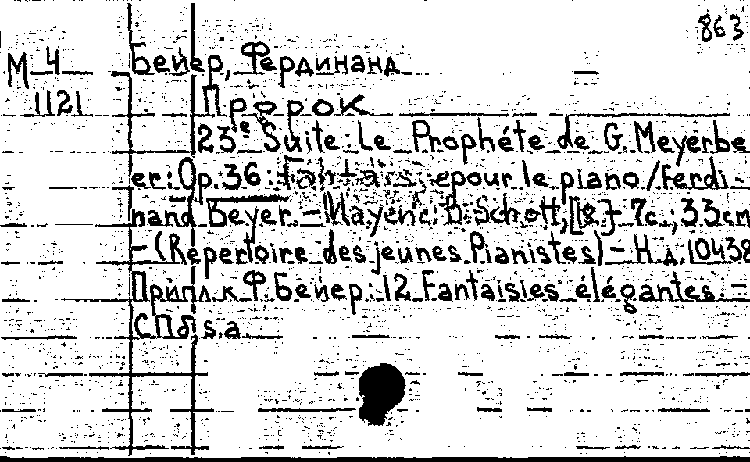 863
М 4 Бейер, Фердинанд
1121 Пророк
23ᵉ Suite: Le Prophéte de G. Meyerbe
er: Op. 36: Fantaisie pour le piano / Ferdi-
nand Beyer. - Mayence: B. Schott, - 7c.; 33cm
- (Repertoire des jeunes Pianistes) - Н.д. 10438
Припл. к Ф. Бейер: 12 Fantaisies élégantes. -
СПб, s.a.